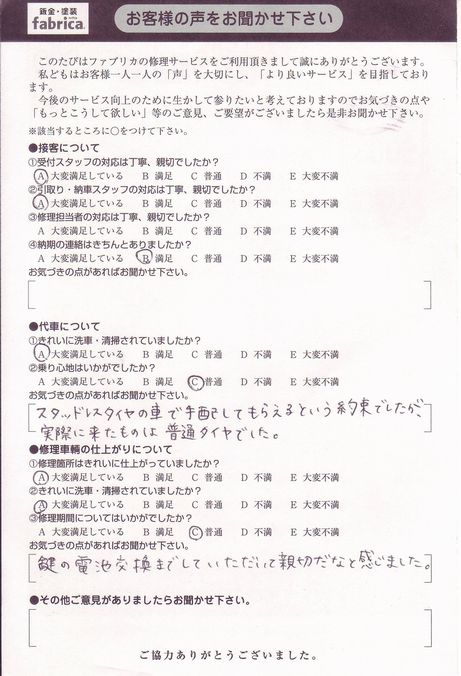 鈑金・塗装
fabrica.
お客様の声をお聞かせ下さい
このたびはファブリカの修理サービスをご利用頂きまして誠にありがとうございます。
私どもはお客様一人一人の「声」を大切にし、「より良いサービス」を目指しており
ます。
今後のサービス向上のために生かして参りたいと考えておりますのでお気づきの点や
「もっとこうして欲しい」等のご意見、ご要望がございましたら是非お聞かせ下さい。
※該当するところに〇をつけて下さい。
●接客について
①受付スタッフの対応は丁寧、親切でしたか?
A 大変満足している B 満足 C 普通 D 不満 E 大変不満
②引取り・納車スタッフの対応は丁寧、親切でしたか?
A 大変満足している B 満足 C 普通 D 不満 E 大変不満
③修理担当者の対応は丁寧、親切でしたか?
A 大変満足している B 満足 C 普通 D 不満 E 大変不満
④納期の連絡はきちんとありましたか?
A 大変満足している B 満足 C 普通 D 不満 E 大変不満
お気づきの点があればお聞かせ下さい。
●代車について
①きれいに洗車・清掃されていましたか?
A 大変満足している B 満足 C 普通 D 不満 E 大変不満
②乗り心地はいかがでしたか?
A 大変満足している B 満足 C 普通 D 不満 E 大変不満
お気づきの点があればお聞かせ下さい。
スタッドレスタイヤの車で手配してもらえるという約束でしたが、
実際に来たものは普通タイヤでした。
●修理車輌の仕上がりについて
①修理箇所はきれいに仕上がっていましたか?
A 大変満足している B 満足 C 普通 D 不満 E 大変不満
②きれいに洗車・清掃されていましたか?
A 大変満足している B 満足 C 普通 D 不満 E 大変不満
③修理期間についてはいかがでしたか?
A 大変満足している B 満足 C 普通 D 不満 E 大変不満
お気づきの点があればお聞かせ下さい。
鍵の電池交換までしていただいて親切だなと感じました。
●その他ご意見がありましたらお聞かせ下さい。
ご協力ありがとうございました。